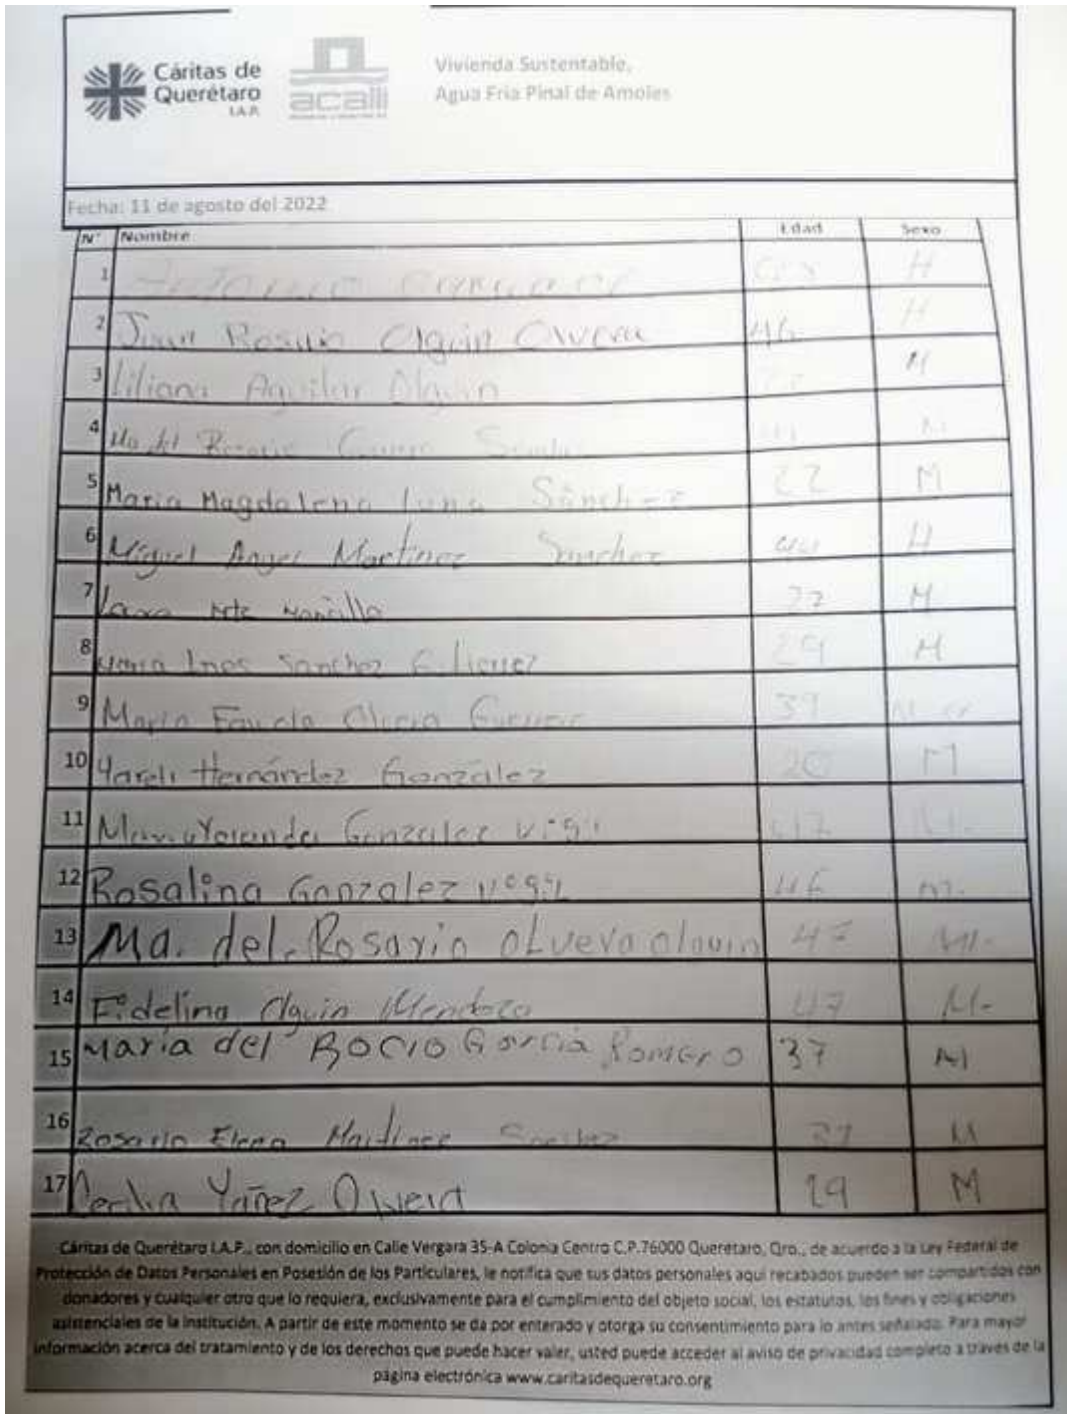 Cáritas de
Querétaro
I.A.P.
acalli
Vivienda Sustentable,
Agua Fria Pinal de Amoles
Fecha: 11 de agosto del 2022
N° Nombre Edad Sexo
1 H
2 Juan Rosario Olguin Olvera 46 H
3 Liliana Aguilar Olguin M
4 Ma del Rosario M
5 Maria Magdalena Luna Sánchez 22 M
6 Miguel Angel Martinez Sanchez 44 H
7 27 M
8 Maria Ines Sanchez 29 M
9 Maria 39
10 Yareli Hernández González 20 M
11 Gonzalez 47 M.
12 Rosalina Gonzalez 46 M.
13 Ma. del Rosario oLvera olguin 47 M.
14 Fidelina Olguin Mendoza 47 M-
15 Maria del ROCIO Garcia Romero 37 M
16 Rosario Elena Martinez Sanchez 37 M
17 Cecilia Yañez Olvera 29 M
Cáritas de Querétaro I.A.P., con domicilio en Calle Vergara 35-A Colonia Centro C.P.76000 Querétaro, Qro., de acuerdo a la Ley Federal de
Protección de Datos Personales en Posesión de los Particulares, le notifica que sus datos personales aquí recabados pueden ser compartidos con
donadores y cualquier otro que lo requiera, exclusivamente para el cumplimiento del objeto social, los estatutos, los fines y obligaciones
asistenciales de la institución. A partir de este momento se da por enterado y otorga su consentimiento para lo antes señalado. Para mayor
información acerca del tratamiento y de los derechos que puede hacer valer, usted puede acceder al aviso de privacidad completo a través de la
página electrónica www.caritasdequeretaro.org